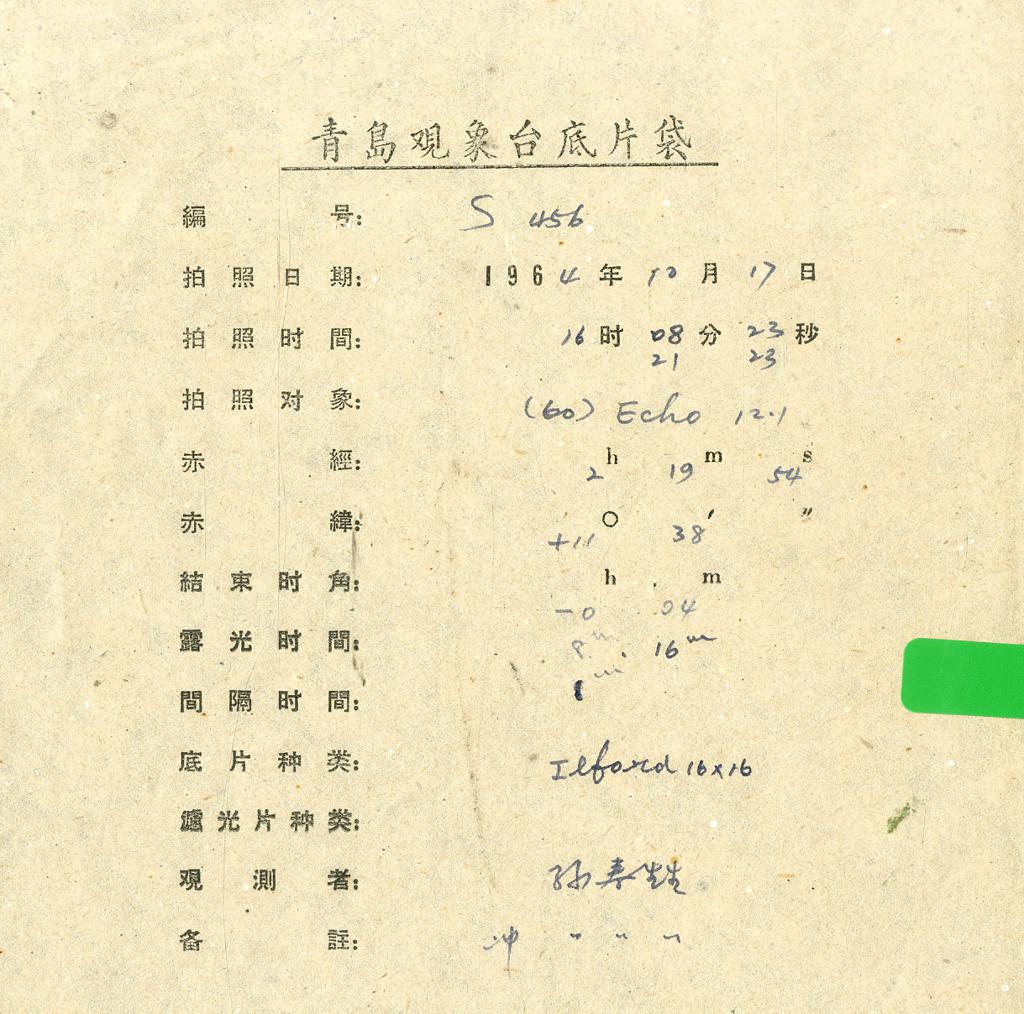 青島观象台底片袋
編号: S 456
拍照日期: 1964年10月17日
拍照时間: 16时08分23秒
21 23
拍照对象: (60) Echo 12.1
赤經: 2h 19m 54s
赤緯: +11° 38′ ″
結束时角: -0h 04m
露光时間: 8m. 16m
間隔时間: 1m
底片种类: Ilford 16×16
濾光片种类:
观測者: 孙春
备註: 冲 " " "